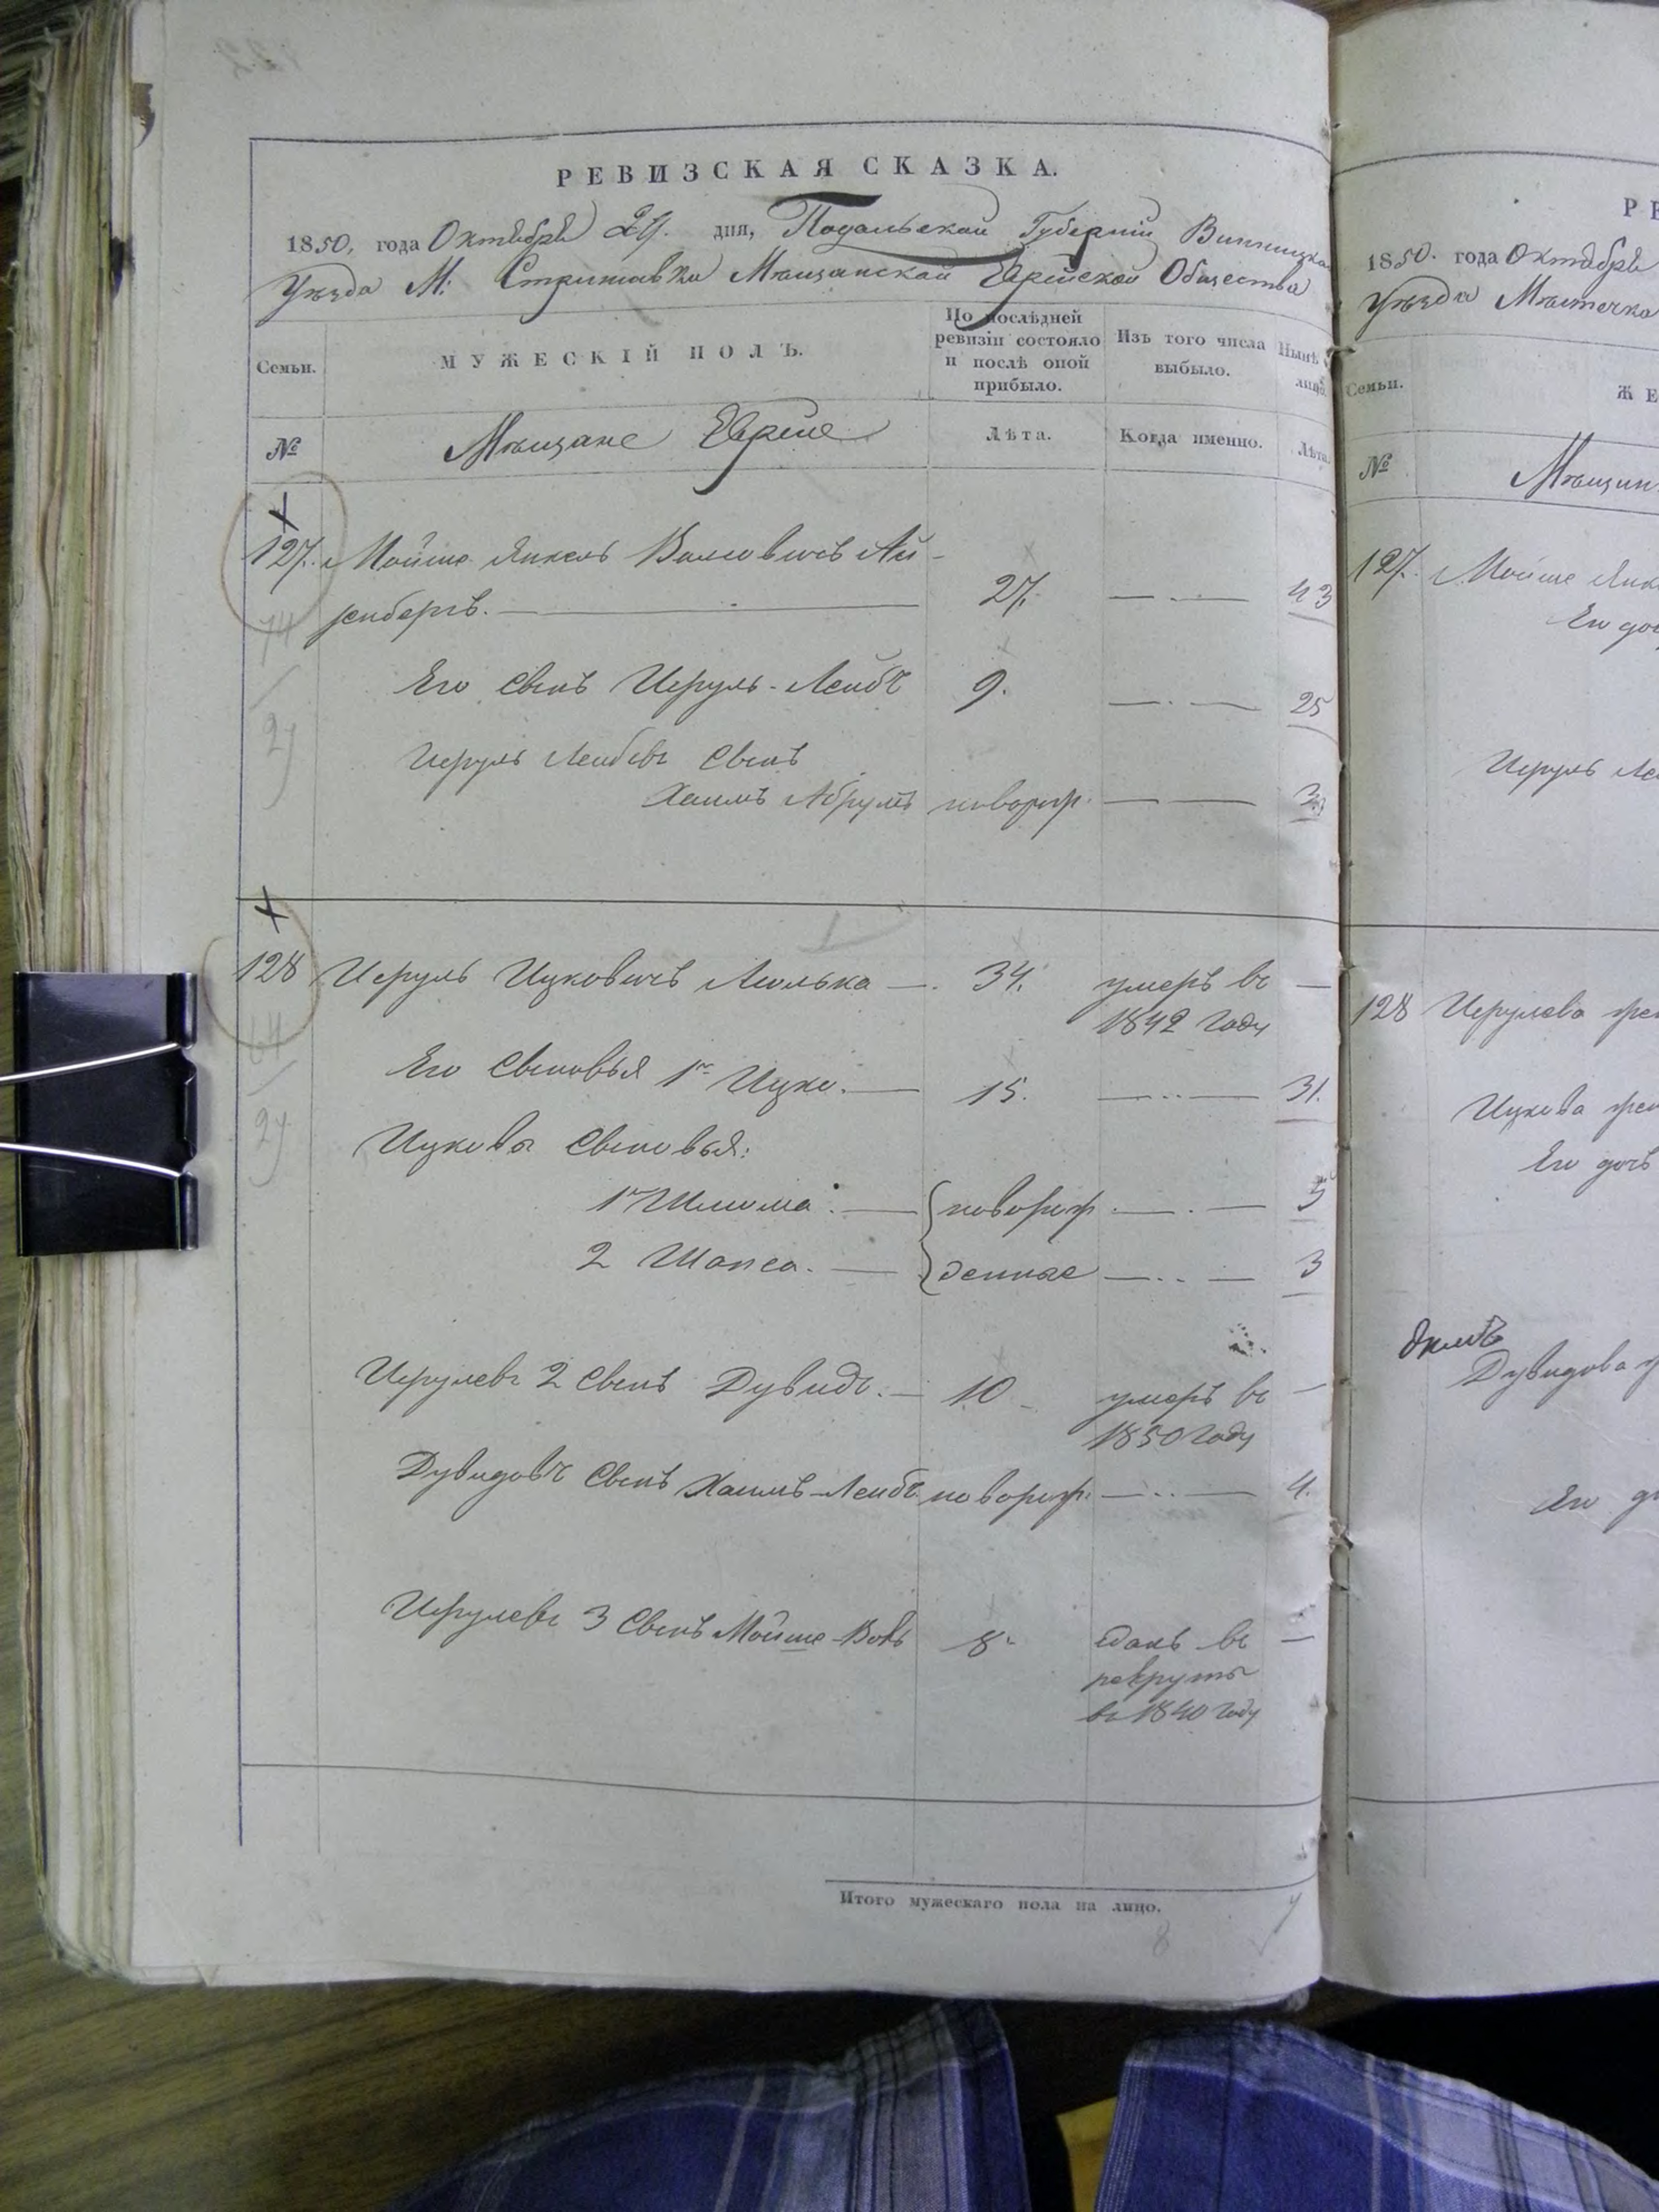 РЕВИЗСКАЯ СКАЗКА.
1850, года Октября 29. дня, Подольской Губерніи Винницка
Уѣзда М: Стрижавки Мѣщанской Еврейской Общества
Семьи.
МУЖЕСКІЙ ПОЛЪ.
По послѣдней
ревизіи состояло
и послѣ оной
прибыло.
Изъ того числа
выбыло.
Нынѣ
лицо.
№
Мѣщане Евреи
Лѣта.
Когда именно.
Лѣта.
127. Мойше Янкель Волковичъ Ай-
зенбергъ. 27. 43
Его сынъ Исруль-Лейбъ 9. 25
Исруль Лейбовъ сынъ
Хаимъ Абрумъ новорож. 3
128 Исруль Ицковичъ Люлька 34. умеръ въ
1842 году
Его сыновья 1й Ицко. 15. 31.
Ицковы сыновья:
1й Шлиома. новорож 5
2 Шапса. денные 3
Исрулевъ 2 сынъ Дувидъ. 10 умеръ въ
1850 году
Дувидовъ сынъ Хаимъ-Лейбъ новорож. 4.
Исрулевъ 3 сынъ Мойше-Вовъ 8 сданъ въ
рекруты
въ 1840 году
Итого мужескаго пола на лицо.
8
РЕ
1850. года Октября
Уѣзда Мѣстечка
Семьи.
ЖЕ
№
Мѣщан
127. Мойше Янк
Его доч
Исруль Ле
128 Исрулева жен
Ицкова жен
Его дочь
Дувидова ж
Его д